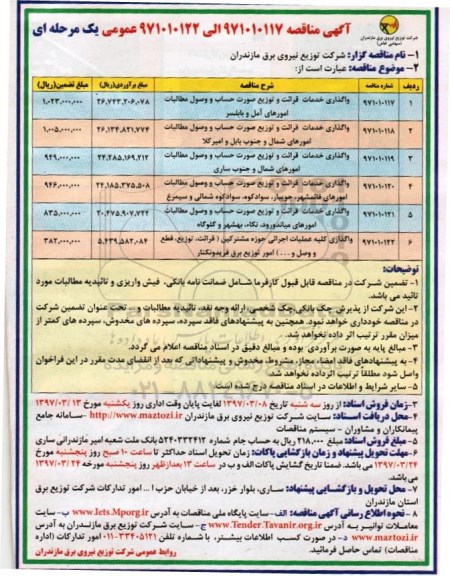 شرکت توزیع نیروی برق مازندران
(سهامی خاص)
آگهی مناقصه ۹۷۱۰۱۰۱۱۷ الی ۹۷۱۰۱۰۱۲۲ عمومی یک مرحله ای
۱- نام مناقصه گزار: شرکت توزیع نیروی برق مازندران
۲- موضوع مناقصه: عبارت است از:
ردیف شرح مناقصه مبلغ برآوردی(ریال) مبلغ تضمین(ریال)
۱ ۹۷۱۰۱۰۱۱۷ واگذاری خدمات قرائت و توزیع صورت حساب و وصول مطالبات امورهای آمل و بابلسر ۲۶,۷۴۳,۲۰۶,۰۷۸ ۱,۰۲۳,۰۰۰,۰۰۰
۲ ۹۷۱۰۱۰۱۱۸ واگذاری خدمات قرائت و توزیع صورت حساب و وصول مطالبات امورهای شمال و جنوب بابل و امیرکلا ۲۶,۱۳۴,۸۲۱,۷۷۴ ۱,۰۰۵,۰۰۰,۰۰۰
۳ ۹۷۱۰۱۰۱۱۹ واگذاری خدمات قرائت و توزیع صورت حساب و وصول مطالبات امورهای شمال و جنوب ساری ۲۴,۲۸۵,۱۶۹,۷۱۲ ۹۴۹,۰۰۰,۰۰۰
۴ ۹۷۱۰۱۰۱۲۰ واگذاری خدمات قرائت و توزیع صورت حساب و وصول مطالبات امورهای قائمشهر، جویبار، سوادکوه، سوادکوه شمالی و سیمرغ ۲۴,۱۸۵,۳۷۵,۵۰۸ ۹۴۶,۰۰۰,۰۰۰
۵ ۹۷۱۰۱۰۱۲۱ واگذاری خدمات قرائت و توزیع صورت حساب و وصول مطالبات امورهای میاندورود، نکاء، بهشهر و گلوگاه ۲۰,۴۷۵,۹۰۷,۷۲۴ ۸۳۵,۰۰۰,۰۰۰
۶ ۹۷۱۰۱۰۱۲۲ واگذاری کلیه عملیات اجرائی حوزه مشترکین ( قرائت، توزیع، قطع و وصل و ... ) امور توزیع برق فریدونکنار ۵,۴۳۹,۵۸۲,۰۸۴ ۳۸۲,۰۰۰,۰۰۰
توضیحات:
۱- تضمین شرکت در مناقصه قابل قبول کارفرما شامل ضمانت نامه بانکی، فیش واریزی و تائیدیه مطالبات مورد
تائید می باشد.
۲- این شرکت از پذیرش چک بانکی، چک شخصی، ارائه وجه نقد، تائیدیه مطالبات و... تحت عنوان تضمین شرکت
در مناقصه خودداری خواهد نمود. همچنین به پیشنهادهای فاقد سپرده، سپرده های مخدوش، سپرده های کمتر از
میزان مقرر ترتیب اثر داده نخواهد شد.
۳- مبالغ پایه به صورت برآوردی بوده و مبالغ دقیق در اسناد مناقصه اعلام می گردد.
۴- به پیشنهادهای فاقد امضاء مجاز، مشروط، مخدوش و پیشنهاداتی که بعد از انقضای مدت مقرر در این فراخوان
واصل شود مطلقاً ترتیب اثرداده نخواهد شد.
۵- سایر شرایط و اطلاعات در اسناد مناقصه درج شده است
۳- زمان فروش اسناد: از روز سه شنبه تاریخ ۱۳۹۷/۰۳/۰۸ لغایت پایان وقت اداری روز یکشنبه مورخ ۱۳۹۷/۰۳/۱۳
۴- محل دریافت اسناد: سایت شرکت توزیع نیروی برق مازندران http://www.maztozi.ir -سامانه جامع
پیمانکاران و مشاوران - سیستم مناقصات
۵- مبلغ فروش اسناد: ۲۱۸.۰۰۰ ریال به حساب جام شماره ۵۲۴۰۳۳۲۴۱۲ بانک ملت شعبه امیر مازندرانی ساری
۶- مهلت تحویل پیشنهاد و زمان بازگشایی پاکات: زمان تحویل اسناد حداکثر تا ساعت ۱۰ صبح روز پنجشنبه مورخ
۱۳۹۷/۰۳/۲۴ می باشد. ضمنا تاریخ گشایش پاکات الف و ب در ساعت ۱۳ بعدازظهر روز پنجشنبه مورخه ۱۳۹۷/۰۳/۲۴
می باشد.
۷- محل تحویل و بازگشایی پیشنهاد: ساری، بلوار خزر، بعد از خیابان حزب ا... امور تدارکات شرکت توزیع برق
استان مازندران
۸- نحوه اطلاع رسانی آگهی مناقصه: الف- سایت پایگاه ملی مناقصات به آدرس Iets.Mporg.ir ب- سایت
معاملات توانیر به آدرس www.Tender.Tavanir.org.ir ج- سایت شرکت توزیع برق مازندران به آدرس
www.maztozi.ir د- در صورت کسب اطلاعات بیشتر، با شماره تلفن ۳۳۴۰۵۱۲۱-۰۱۱ امور تدارکات (اداره
مناقصات) تماس حاصل فرمائید.
روابط عمومی شرکت توزیع نیروی برق مازندران